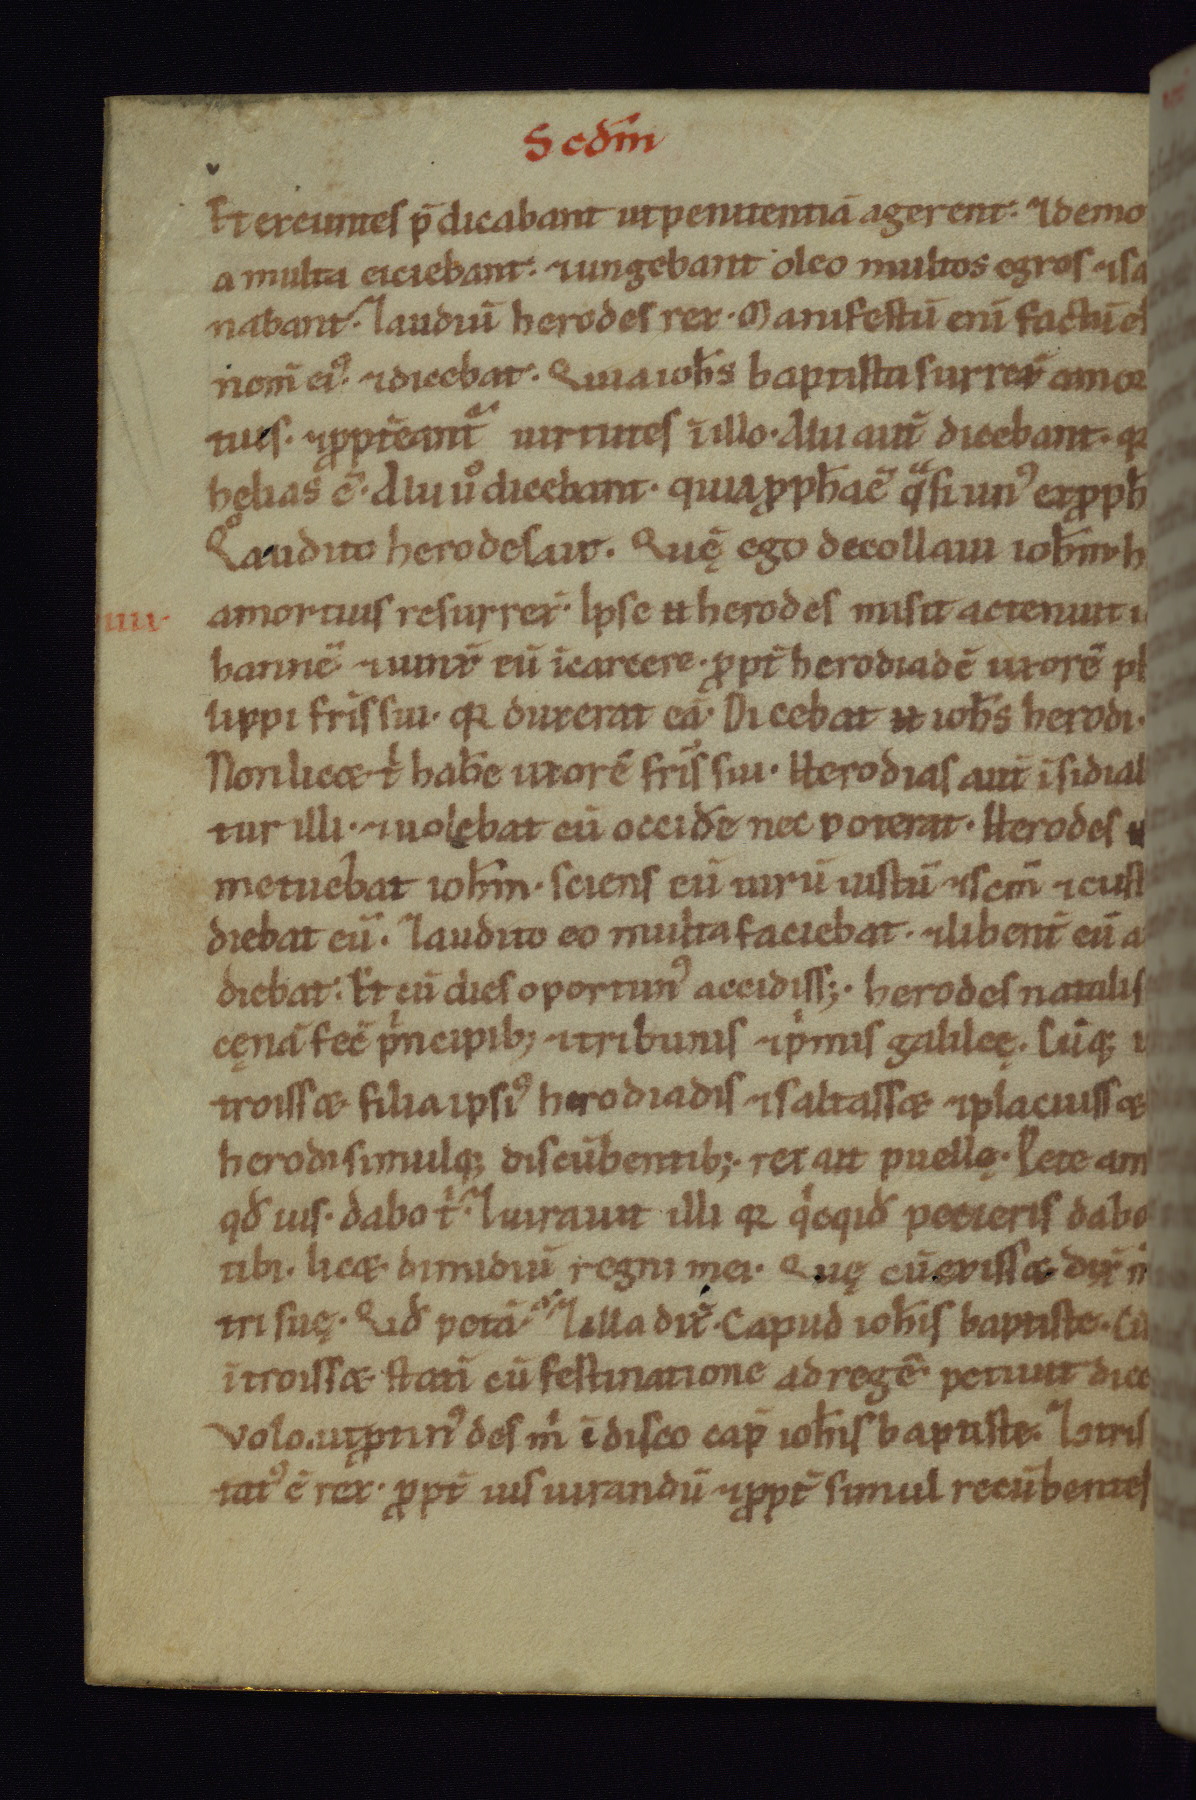 Scdm̄
Et exeuntes p̄dicabant ut penitentiā agerent. ⁊ demo
a multa eiciebant. ⁊ ungebant oleo multos egros ⁊ sa
nabant. ⁊ audiuit herodes rex. Manifestū enī factū e
nom̄ eiꝰ. ⁊ dicebat. Quia ioh̄s baptista surrex̄ a mor
tuis. ⁊ ꝓpt̄ea nt̄ uirtutes ī illo. Alii aut̄ dicebant. qꝛ
helias ē. Alii ů dicebant. quia ꝓph̄a ē qͣsi unꝰ ex ꝓph
Qͦ audito herodes ait. Quę ego decollaui ioh̄m h
IIII
a mortuis resurrex̄. Ipse ū herodes misit ac tenuit i
hannē ⁊ uinx̄ eū ī carcere. ꝓpt̄ herodiadē uxorē ph
lippi fr̄is sui. qꝛ duxerat eā. Dicebat ū ioh̄s herodi.
Non licæt tͥ hab̄e uxorē fr̄is sui. Herodias aut̄ īsidia
tur illi. ⁊ uolebat eū occid̄e nec poterat. Herodes
metuebat ioh̄m. sciens eū uirū iustū ⁊ scm̄ ⁊ cust
diebat eū. ⁊ audito eo multa faciebat. ⁊ libent̄ eū a
diebat. Et cū dies oportunꝰ accidiss;. herodes natalis
cęnā fec̄ pͥncipib; ⁊ tribunis ⁊ pͥmis galileę. Cūq; i
troissæt filia ipsiꝰ herodiadis ⁊ saltassæt ⁊ placuissæt
herodi simulq; discūbentib;. rex ait puellę. Pete a m
qd̄ uis. dabo tͥ. ⁊ iurauit illi qꝛ qͥcqid̄ pecieris dabo
tibi. licæt dimidiū regni mei. Quę cū exissæt dix̄ m
tri suę. Qid̄ petā. ⁊ illa dix̄. Capud ioh̄is baptiste. Cū
ītroissæt statī cū festinatione ad regē. petiuit dice
Volo. ut ꝓtinꝰ des mͥ ī disco cap̄ ioh̄is baptiste. ⁊ ɔtris
tatꝰ ē rex. ꝓpt̄ ius iurandū ⁊ ꝓpt̄ simul recūbentes